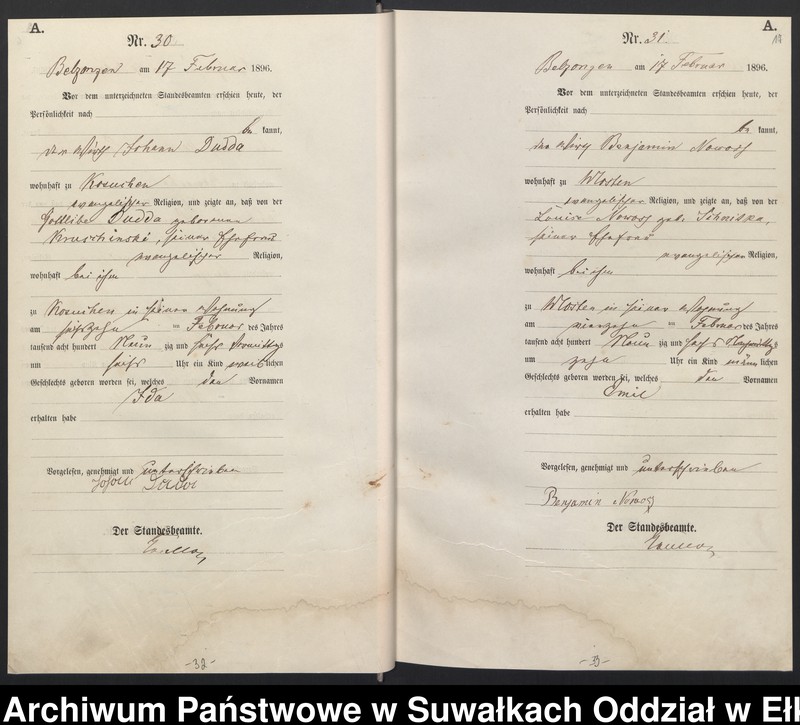 A.
Nr. 30
Belzonzen am 17 Februar 1896.
Vor dem unterzeichneten Standesbeamten erschien heute, der
Persönlichkeit nach
be kannt,
der Wirth Johann Dudda
wohnhaft zu Kosuchen
evangelischer Religion, und zeigte an, daß von der
Gottliebe Dudda geborenen
seiner Ehefrau
evangelischer Religion,
wohnhaft bei ihm
zu Kosuchen in seiner Wohnung
am Februar des Jahres
tausend acht hundert Neun zig und sechs Vormittags
um sechs Uhr ein Kind weib lichen
Geschlechts geboren worden sei, welches den Vornamen
Ida
erhalten habe
Vorgelesen, genehmigt und unterschrieben
Dudda
Der Standesbeamte.
-32-
A.
Nr. 31
Belzonzen am 17 Februar 1896.
Vor dem unterzeichneten Standesbeamten erschien heute, der
Persönlichkeit nach
be kannt,
der Wirth Benjamin Nowosz
wohnhaft zu Wlosten
evangelischer Religion, und zeigte an, daß von der
Louise Nowosz geb.
seiner Ehefrau
evangelischer Religion,
wohnhaft bei ihm
zu Wlosten in seiner Wohnung
am vierzehn Februar des Jahres
tausend acht hundert Neun zig und sechs Nachmittags
um zehn Uhr ein Kind männ lichen
Geschlechts geboren worden sei, welches den Vornamen
Emil
erhalten habe
Vorgelesen, genehmigt und unterschrieben
Benjamin Nowosz
Der Standesbeamte.
-33-
Archiwum Państwowe w Suwałkach Oddział w Eł